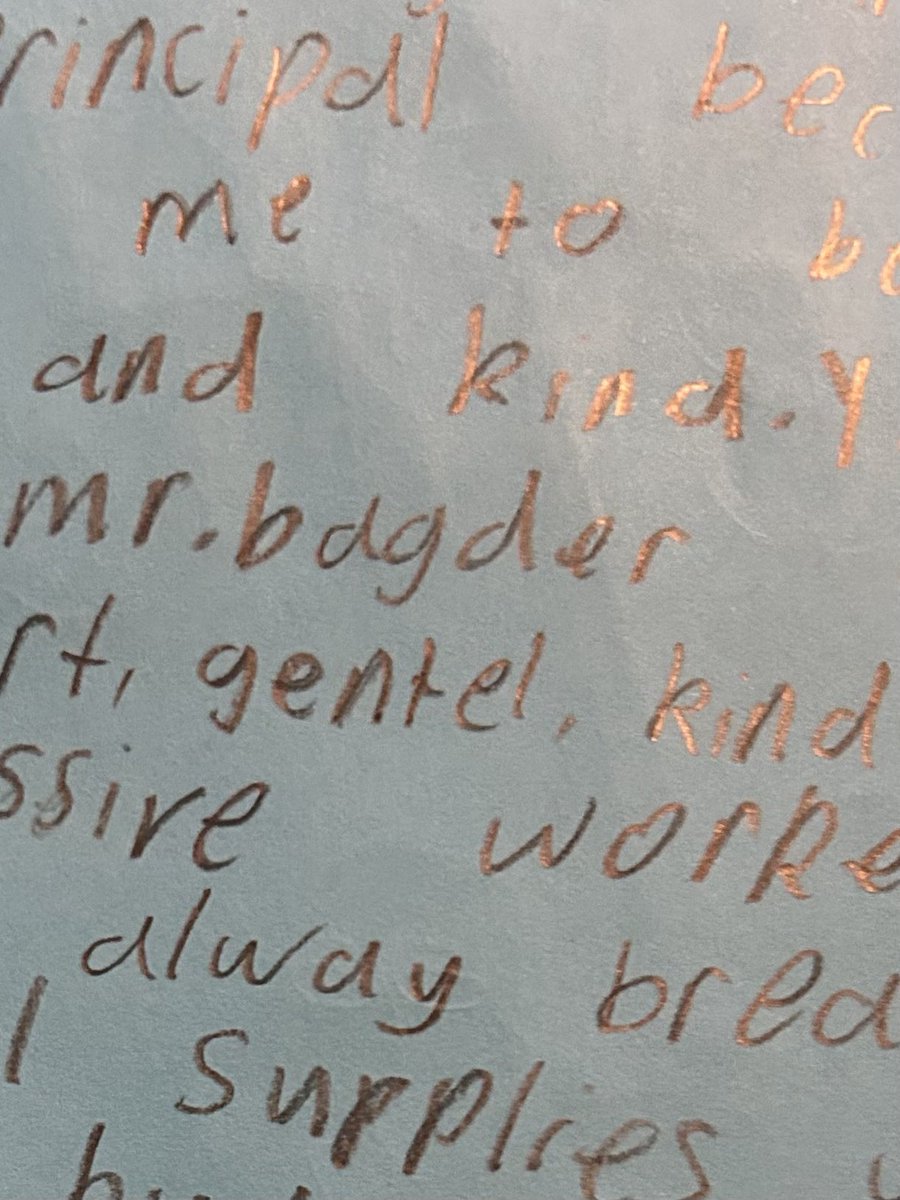 rincipal bec
me to bo
and kind. Y
mr. bagder
rt, gentel, kind
ssive worke
alway brea
l supplies